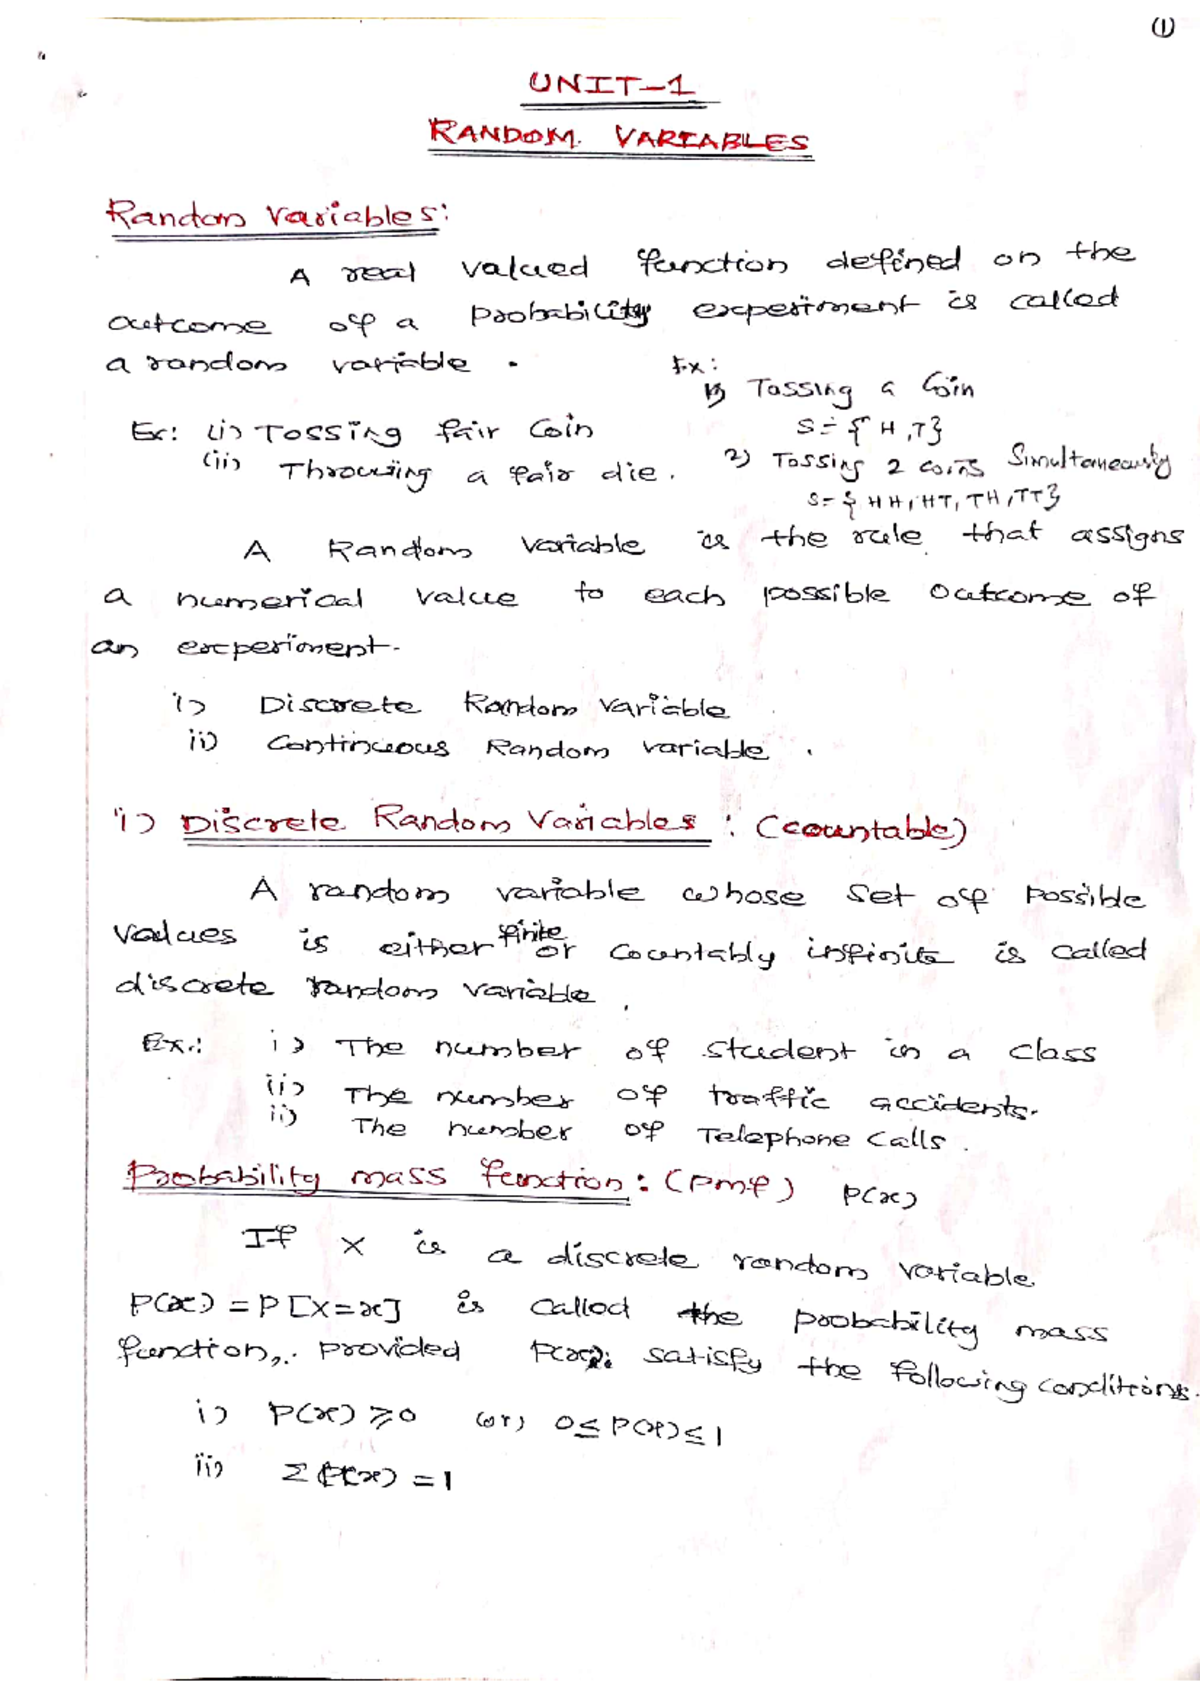 (1)
UNIT-1
RANDOM VARIABLES
Random Variables:
A real valued function defined on the
outcome of a probability experiment is called
a random variable.
Ex: (i) Tossing fair Coin
(ii) Throwing a fair die.
Ex:
1) Tossing a Coin
S = {H,T}
2) Tossing 2 coins Simultaneously
S = {HH, HT, TH, TT}
A Random variable is the rule that assigns
a numerical value to each possible outcome of
an experiment.
i) Discrete Random Variable
ii) Continuous Random variable.
i) Discrete Random Variables: (countable)
A random variable whose set of possible
values is either finite or countably infinite is called
discrete random variable.
Ex.: i) The number of student in a class
ii) The number of traffic accidents.
ii) The number of Telephone calls.
Probability mass function: (pmf) P(x)
If X is a discrete random variable
P(x) = P[X=x] is called the probability mass
function, provided P(x) satisfy the following conditions.
i) P(x) ≥ 0 (or) 0 ≤ P(x) ≤ 1
ii) Σ P(x) = 1